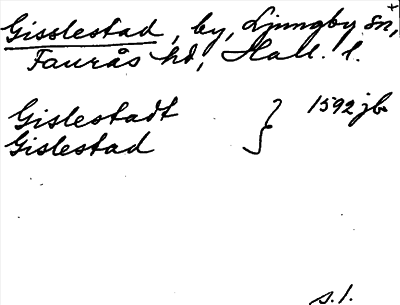 Gisslestad, by, Ljungby sn,+
Faurås hd, Hall. l.
Gislestadt } 1592 jb
Gislestad
s. 1.